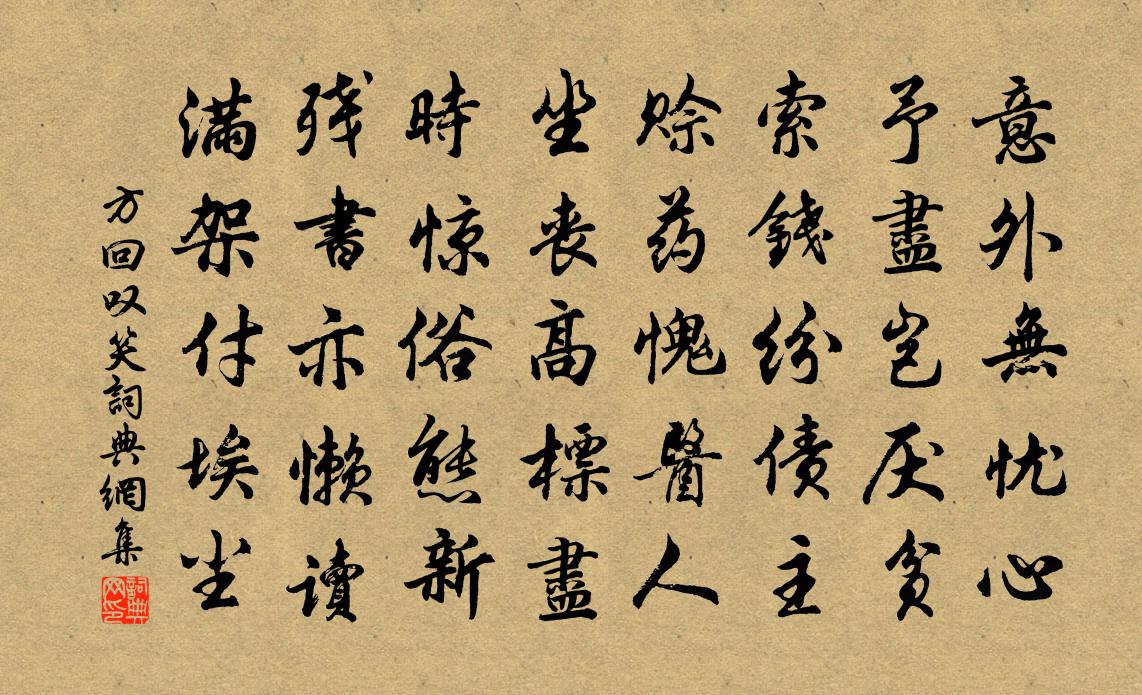 意外無忧心
予盡岂厌貧
索錢纷债主
赊药愧醫人
坐丧高標盡
時惊俗態新
残書亦懒讀
满架付埃尘
方回叹笑詞典網集
詞典网印